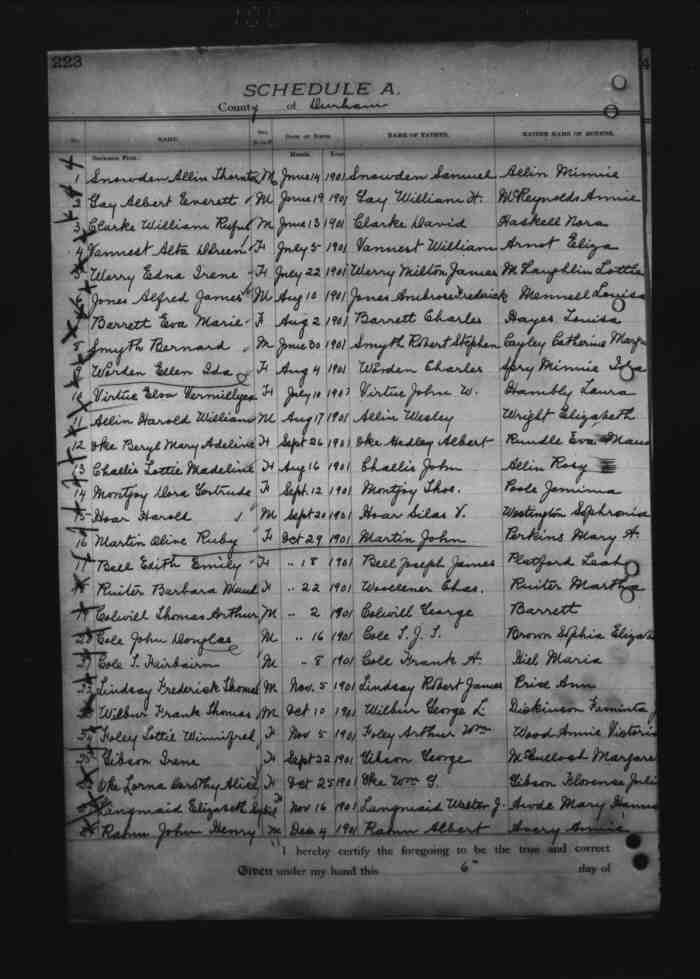 223
SCHEDULE A.
County of Durham
No. NAME. Sex. M. or F. DATE OF BIRTH. NAME OF FATHER. MAIDEN NAME OF MOTHER.
Surname First. Month. Year
1 Snowden Allin Thornton M June 14 1901 Snowden Samuel Allin Minnie
2 Gay Albert Everett M June 19 1901 Gay William H. McReynolds Annie
3 Clarke William Ruful M June 13 1901 Clarke David Haskell Nora
4 Vannest Alta Doreen F July 5 1901 Vannest William Arnot Eliza
5 Werry Edna Irene F July 22 1901 Werry Milton James McLaughlin Lottie
6 Jones Alfred James M Aug 10 1901 Jones Ambrose Frederick Mennell Louisa
7 Barrett Eva Marie F Aug 2 1901 Barrett Charles Hayes Louisa
8 Smyth Bernard M June 30 1901 Smyth Robert Stephen Cayley Catherine
9 Werden Ellen Ida F Aug 4 1901 Werden Charles Spry Minnie Ida
10 Virtue Elva Vermillyea F July 10 1901 Virtue John W. Hambly Laura
11 Allin Harold William M Aug 17 1901 Allin Wesley Wright Elizabeth
12 Oke Beryl Mary Adeline F Sept 26 1901 Oke Hedley Albert Rundle Eva Maud
13 Challis Lottie Madeline F Aug 16 1901 Challis John Allin Rosy
14 Montjoy Dora Gertrude F Sept. 12 1901 Montjoy Thos. Poole Jemima
15 Hoar Harold M Sept 20 1901 Hoar Silas V. Westington Sophronia
16 Martin Olive Ruby F Oct 29 1901 Martin John Perkins Mary A.
17 Bell Edith Emily F " 18 1901 Bell Joseph James Platford Leah
18 Ruiter Barbara Maud F " 22 1901 Woodener Chas. Ruiter Martha
19 Colwill Thomas Arthur M " 2 1901 Colwill George Barrett
20 Cole John Douglas M " 16 1901 Cole S. J. S. Brown Sophia
21 Cole S. Fairbairn M " 8 1901 Cole Frank A. Kiel Maria
22 Lindsay Frederick Thomas M Nov. 5 1901 Lindsay Robert James Price Ann
23 Wilbur Frank Thomas M Oct 10 1901 Wilbur George L Dickinson
24 Foley Lottie Winnifred F Nov 5 1901 Foley Arthur Wm Wood Annie Victoria
25 Gibson Irene F Sept 22 1901 Gibson George McCulloch
26 Oke Lorna Dorothy Alice F Oct 25 1901 Oke Wm G. Gibson Florence
27 Langmaid Elizabeth F Nov 16 1901 Langmaid Walter J. Awde Mary
28 Rahm John Henry M Dec 4 1901 Rahm Albert Avery Annie
I hereby certify the foregoing to be the true and correct
Given under my hand this 6" day of